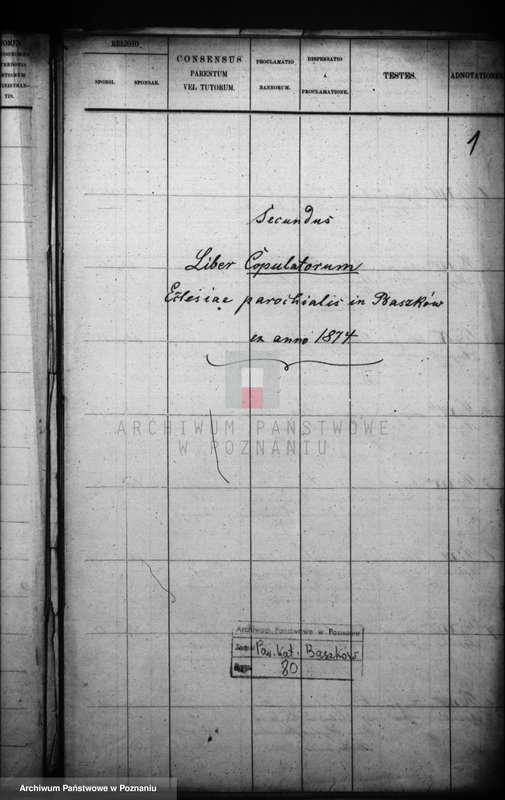 NOMEN
COGNOMEN
CERDOTIS
ENTISMUM
MINISTRAN-
TIS.
RELIGIO
SPONSI.
SPONSAE.
CONSENSUS
PARENTUM
VEL TUTORUM.
PROCLAMATIO
BANNORUM.
DISPENSATIO
A
PROCLAMATIONE.
TESTES.
ADNOTATIONES
1
Secundus
Liber Copulatorum
Eclesiae parochialis in Baszków
ex anno 1874
ARCHIWUM PAŃSTWOWE
W POZNANIU
Archiwum Państwowe w Poznaniu
Par. Kat. Baszków
80
Archiwum Państwowe w Poznaniu